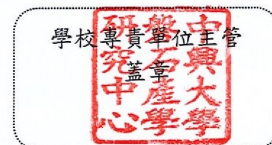 學校專責單位主管
蓋章
中興大學
磐石產學
研究中心